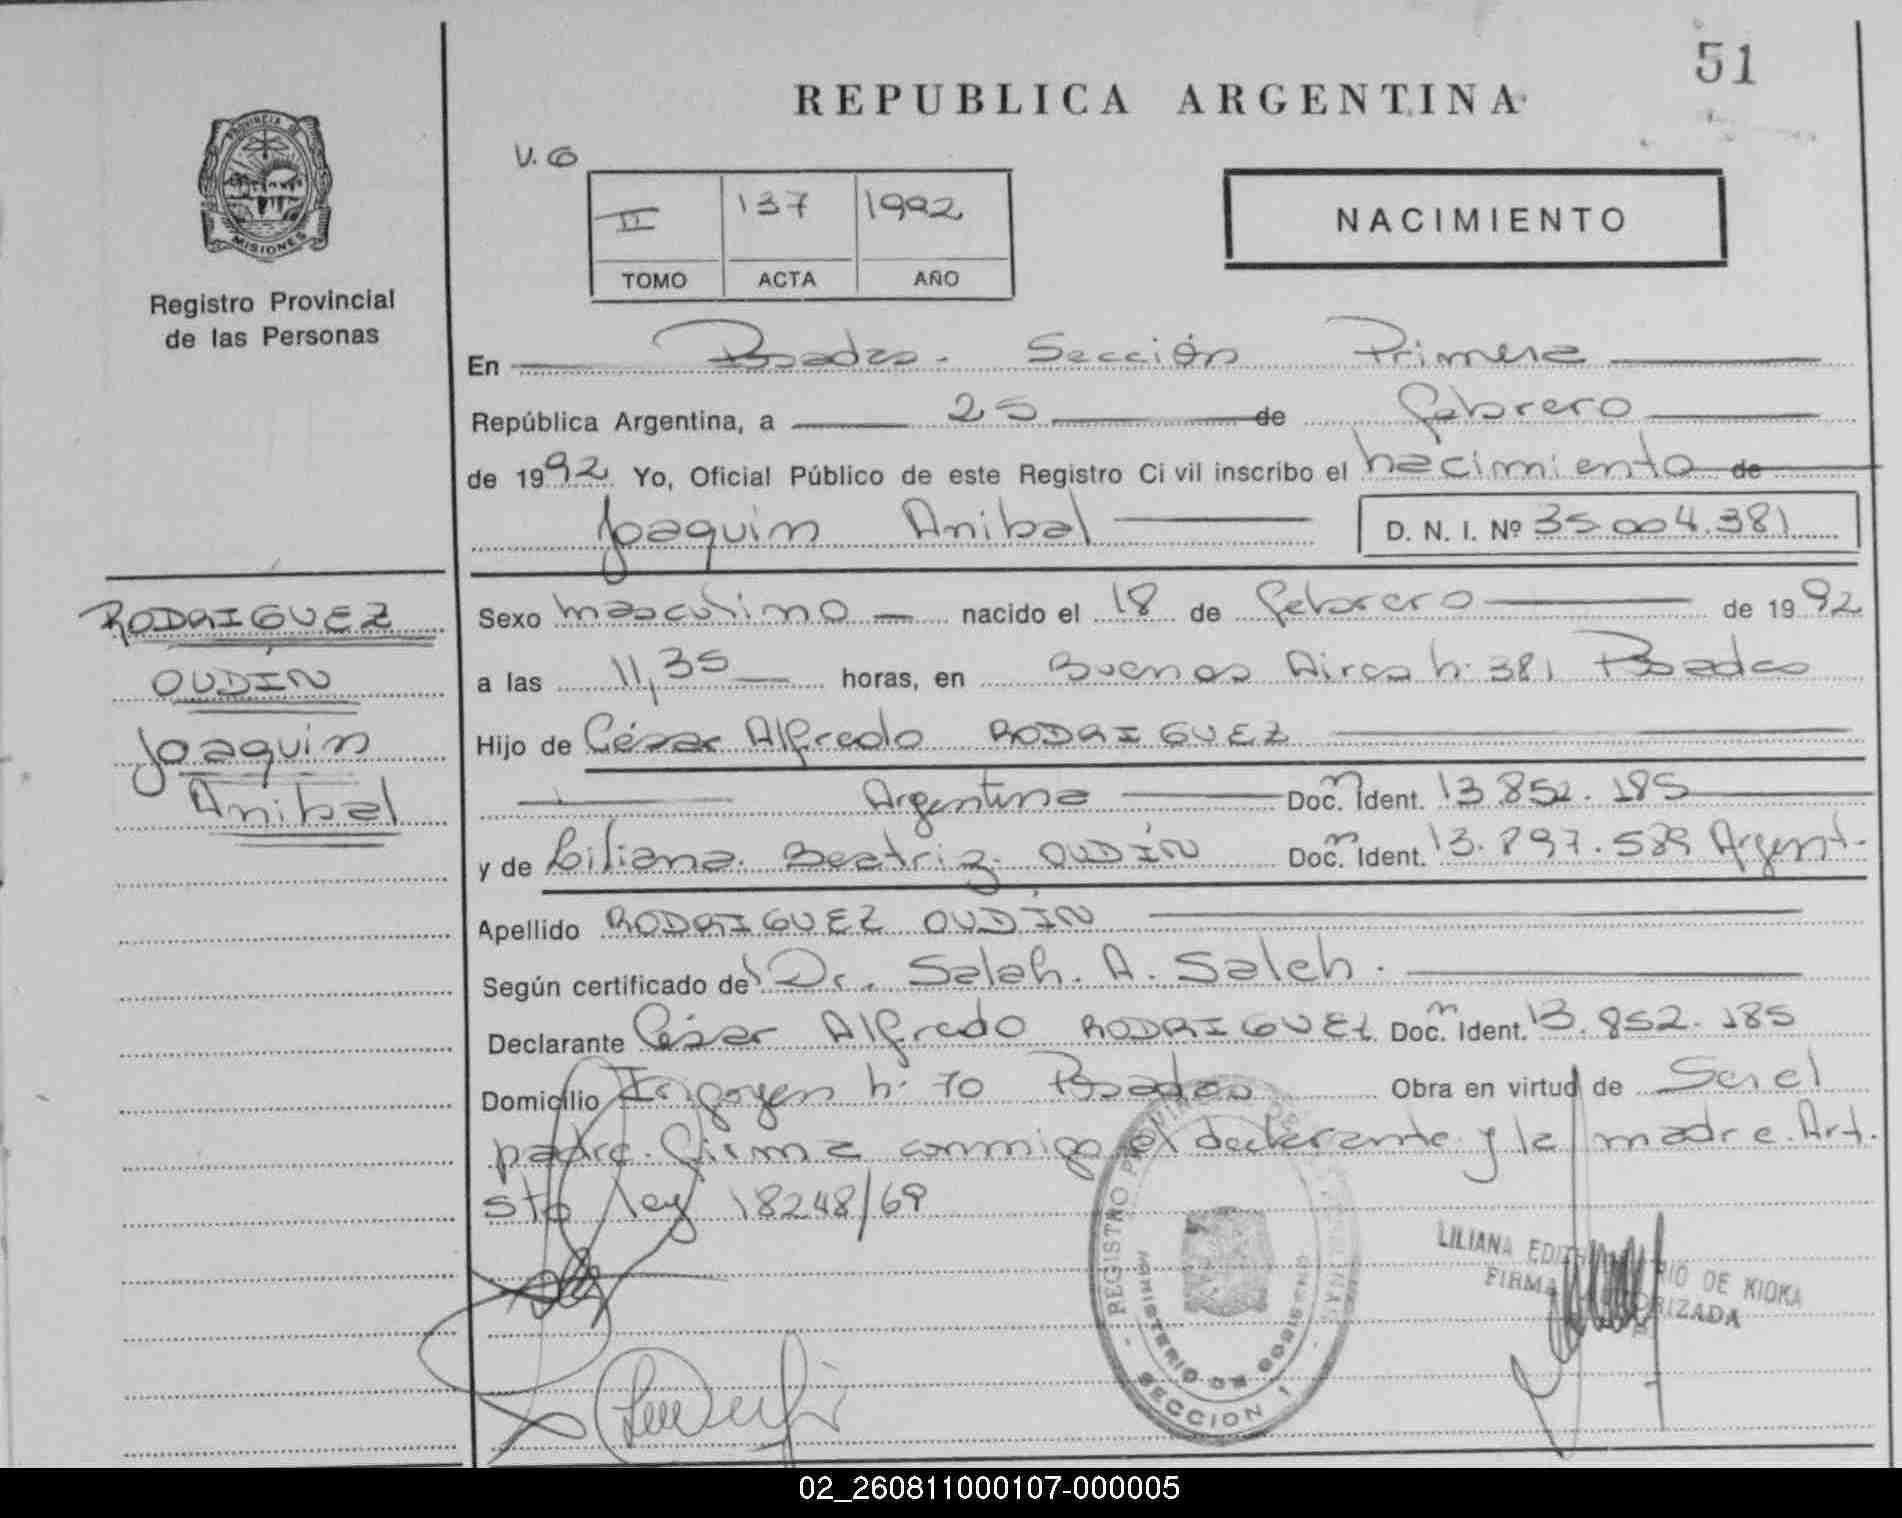 51
REPUBLICA ARGENTINA
PROVINCIA DE
MISIONES
Registro Provincial
de las Personas
V. G
II 137 1992
TOMO ACTA AÑO
NACIMIENTO
En Posadas. Sección Primera
República Argentina, a 25 de febrero
de 1992 Yo, Oficial Público de este Registro Civil inscribo el nacimiento de
Joaquin Anibal D. N. I. Nº 35.004.381
RODRIGUEZ
OUDÍN
Joaquin
Anibal
Sexo masculino nacido el 18 de febrero de 1992
a las 11,35 horas, en Buenos Aires n: 381 Posadas
Hijo de César Alfredo RODRIGUEZ
Argentina Doc. Ident. 13.852.185
y de Liliana Beatriz OUDÍN Doc. Ident. 13.897.589 Argent.
Apellido RODRIGUEZ OUDÍN
Según certificado de Dr. Salah. A. Saleh.
Declarante César Alfredo RODRIGUEZ Doc. Ident. 13.852.185
Domicilio Irigoyen n: 70 Posadas Obra en virtud de Ser el
padre. firma conmigo el declarante y la madre. Art.
5to ley 18248/69
REGISTRO
MINISTERIO DE GOBIERNO
SECCION 1
LILIANA DE KIOKA
FIRMA
02_260811000107-000005